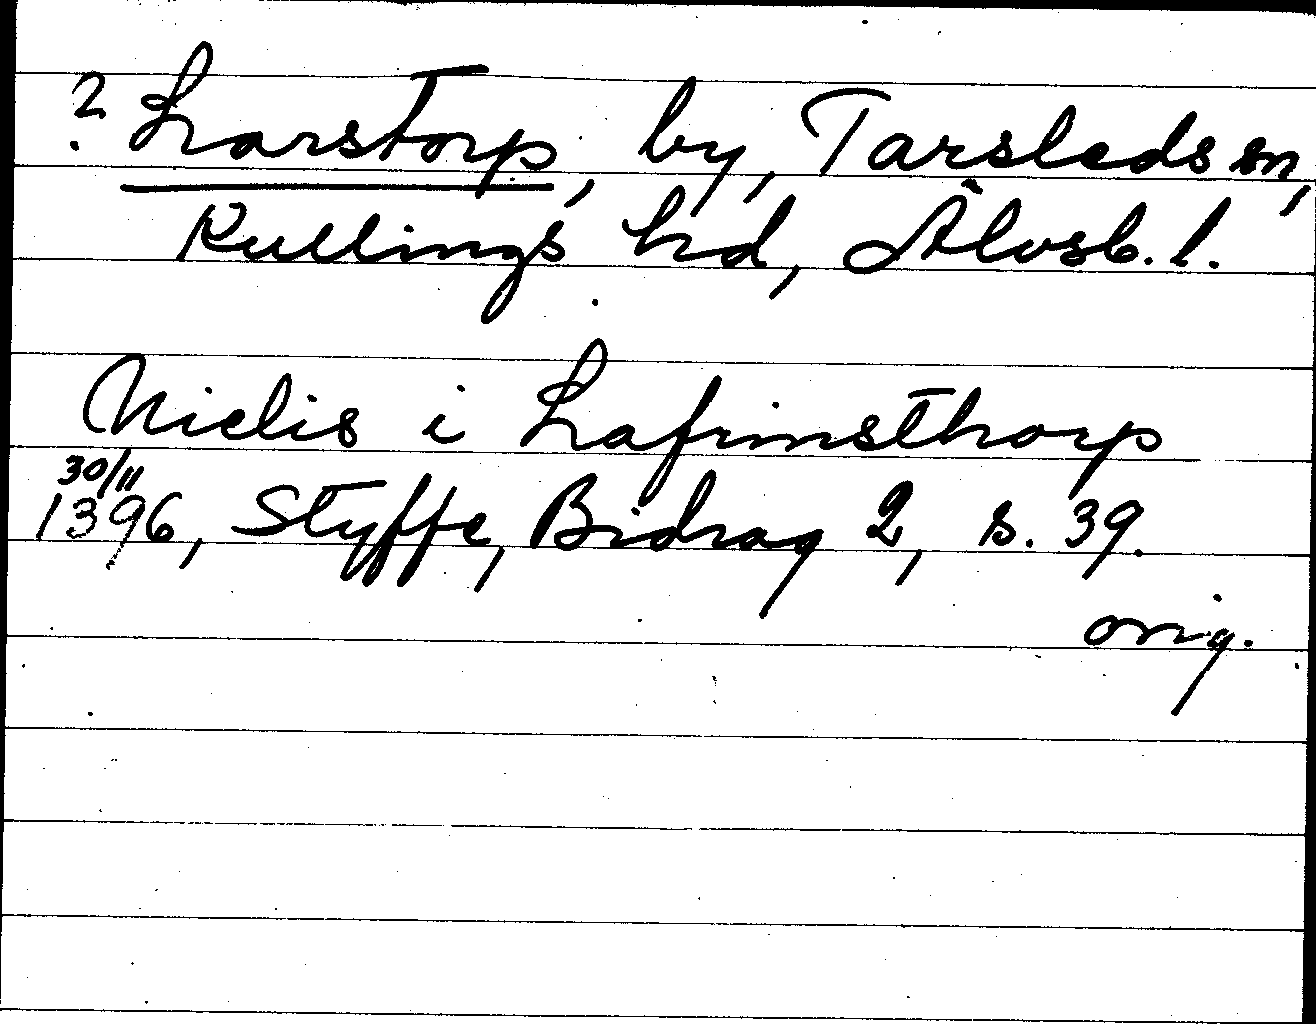 ? Larstorp, by, Tarsleds sn,
Kullings hd, Älvsb. l.
Nielis i Lafrinsthorp
30/11
1396, Styffe, Bidrag 2, s. 39.
orig.